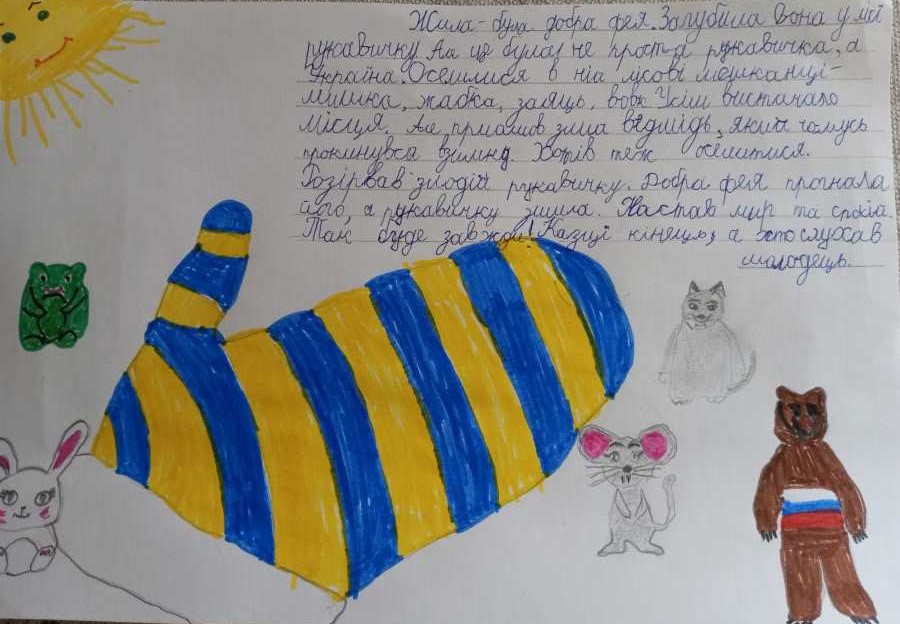 Жила-була добра фея. Загубила вона у лісі
рукавичку. Ал це була не проста рукавичка, а
Україна. Оселилися в ній лісові мешканці-
мишка, жабка, заяць, вовк. Усім вистачало
місця. Але прийшов злий ведмідь, який чомусь
прокинувся взимку. Хотів теж оселитися.
Розірвав злодій рукавичку. Добра фея прогнала
його, а рукавичку зшила. Настав мир та спокій.
Так буде завжди! Казці кінець, а хто слухав
молодець.